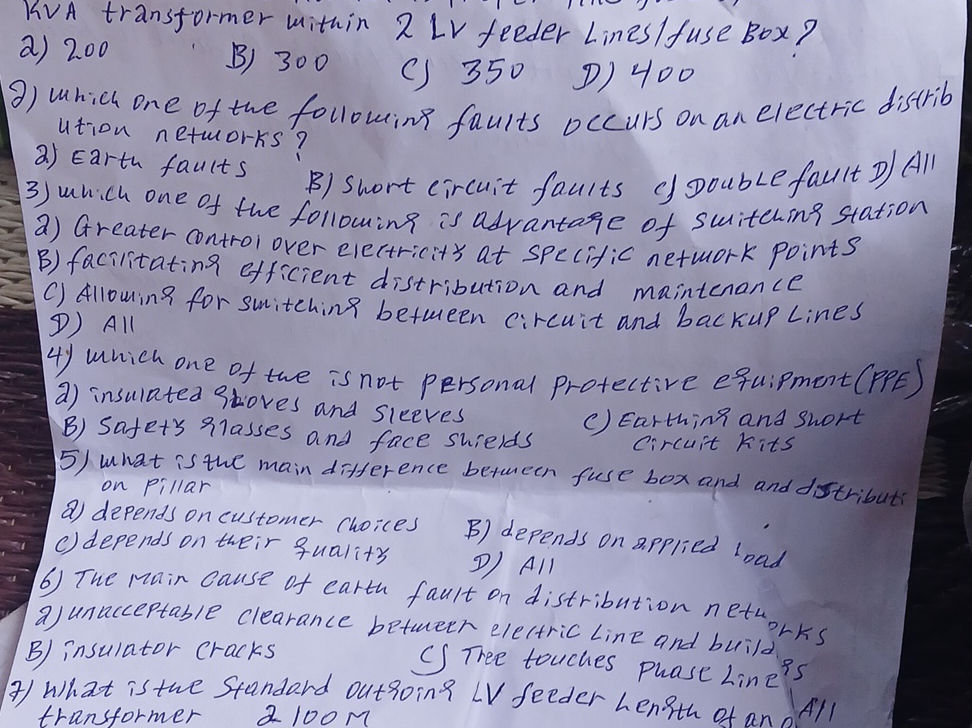 KVA transformer within 2 LV feeder Lines/fuse Box?
a) 200 B) 300 C) 350 D) 400
2) which one of the following faults occurs on an electric distrib
ution networks?
a) Earth faults B) Short circuit faults c) Double fault D) All
3) which one of the following is advantage of switching station
a) Greater control over electricity at specific network points
B) facilitating efficient distribution and maintenance
C) Allowing for switching between circuit and backup Lines
D) All
4) which one of the is not personal protective equipment (PPE)
a) insulated gloves and sleeves C) Earthing and short
B) Safety glasses and face shields circuit kits
5) what is the main difference between fuse box and and distributi
on pillar
a) depends on customer choices B) depends on applied load
c) depends on their quality D) All
6) The main cause of earth fault on distribution networks
a) unacceptable clearance between electric Line and build
B) insulator cracks C) Tree touches phase Line All
7) What is the Standard outgoing LV feeder Length of an
transformer 100m